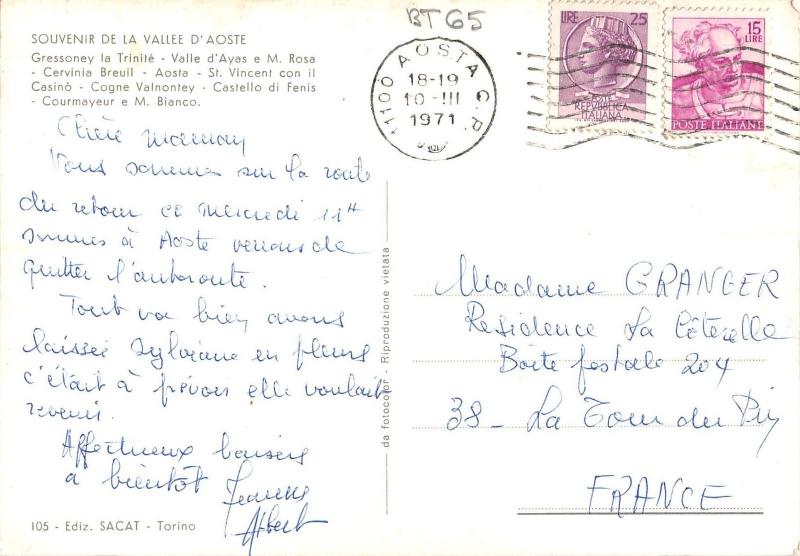 BT65
SOUVENIR DE LA VALLEE D'AOSTE
Gressoney la Trinité - Valle d'Ayas e M. Rosa
- Cervinia Breuil - Aosta - St. Vincent con il
Casinò - Cogne Valnontey - Castello di Fenis
- Courmayeur e M. Bianco.
11100 AOSTA C.P.
18-19
10-III
1971
LIRE 25
REPVBBLICA
ITALIANA
15
LIRE
POSTE ITALIANE
Chère maman
Nous sommes sur la route
du retour ce mercredi 11H
sommes à Aoste venons de
quitter l'autoroute.
Tout va bien avons
laissé Sylviane en pleurs
c'était à prévoir elle voulait
revenir.
Affectueux baisers
à bientôt
Albert
105 - Ediz. SACAT - Torino
da fotocolor - Riproduzione vietata
Madame GRANGER
Residence La Côterelle
Boîte postale 204
38 - La Tour du Pin
FRANCE